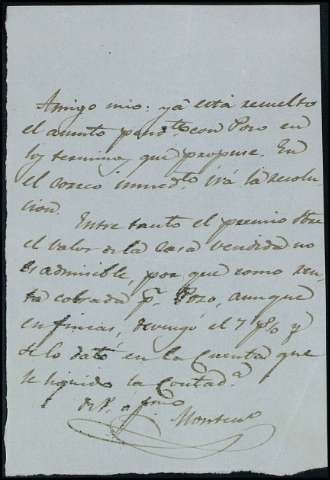 Amigo mio: ya está resuelto
el asunto pend.te con Pozo en
los terminos que propuse. En
el correo inmed.to irá la resolu-
cion.
Entre tanto el premio sobre
el valor de la casa vendida no
es admisible, por que como ven-
ta cobrada p.r Pozo, aunque
en fincas, devengó el 7 p% y
se lo dató en la Cuenta que
le liquidó la Contad.a
de V. afmo